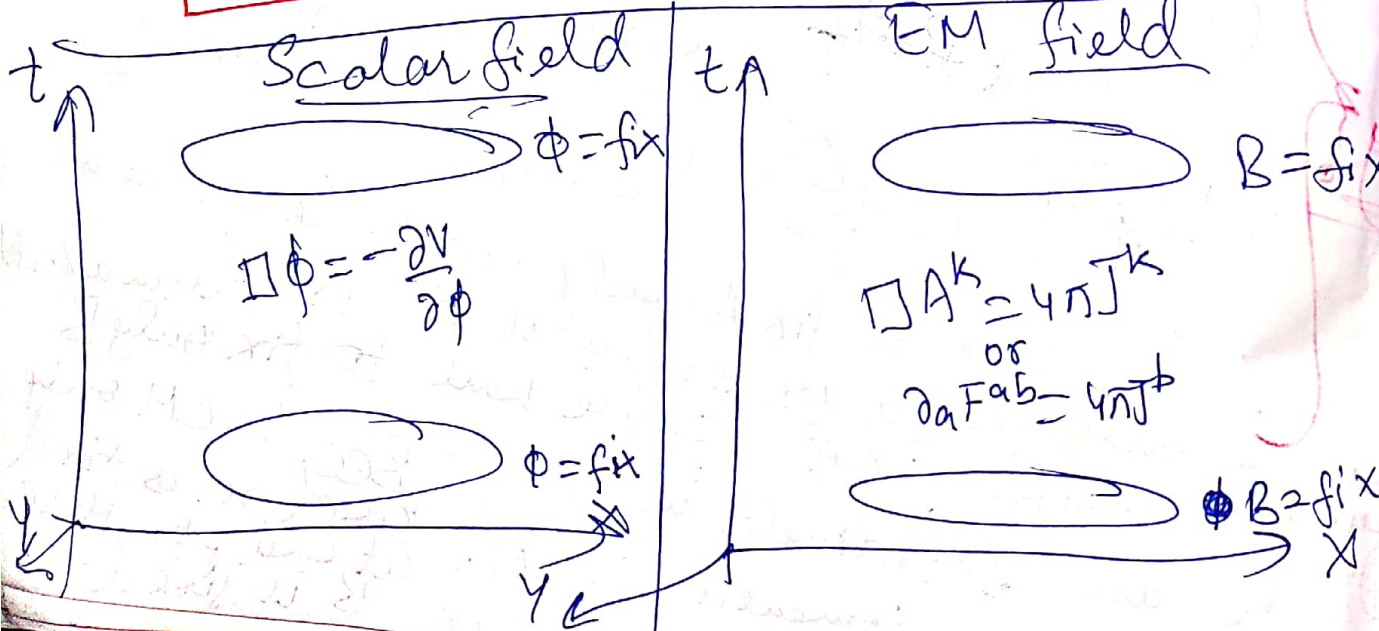 Scalar field
t
ϕ = fix
□ϕ = -∂V/∂ϕ
ϕ = fix
y
X
EM field
t
B = fix
□A^k = 4πJ^k
or
∂_a F^{ab} = 4πJ^b
B = fix
X
Y